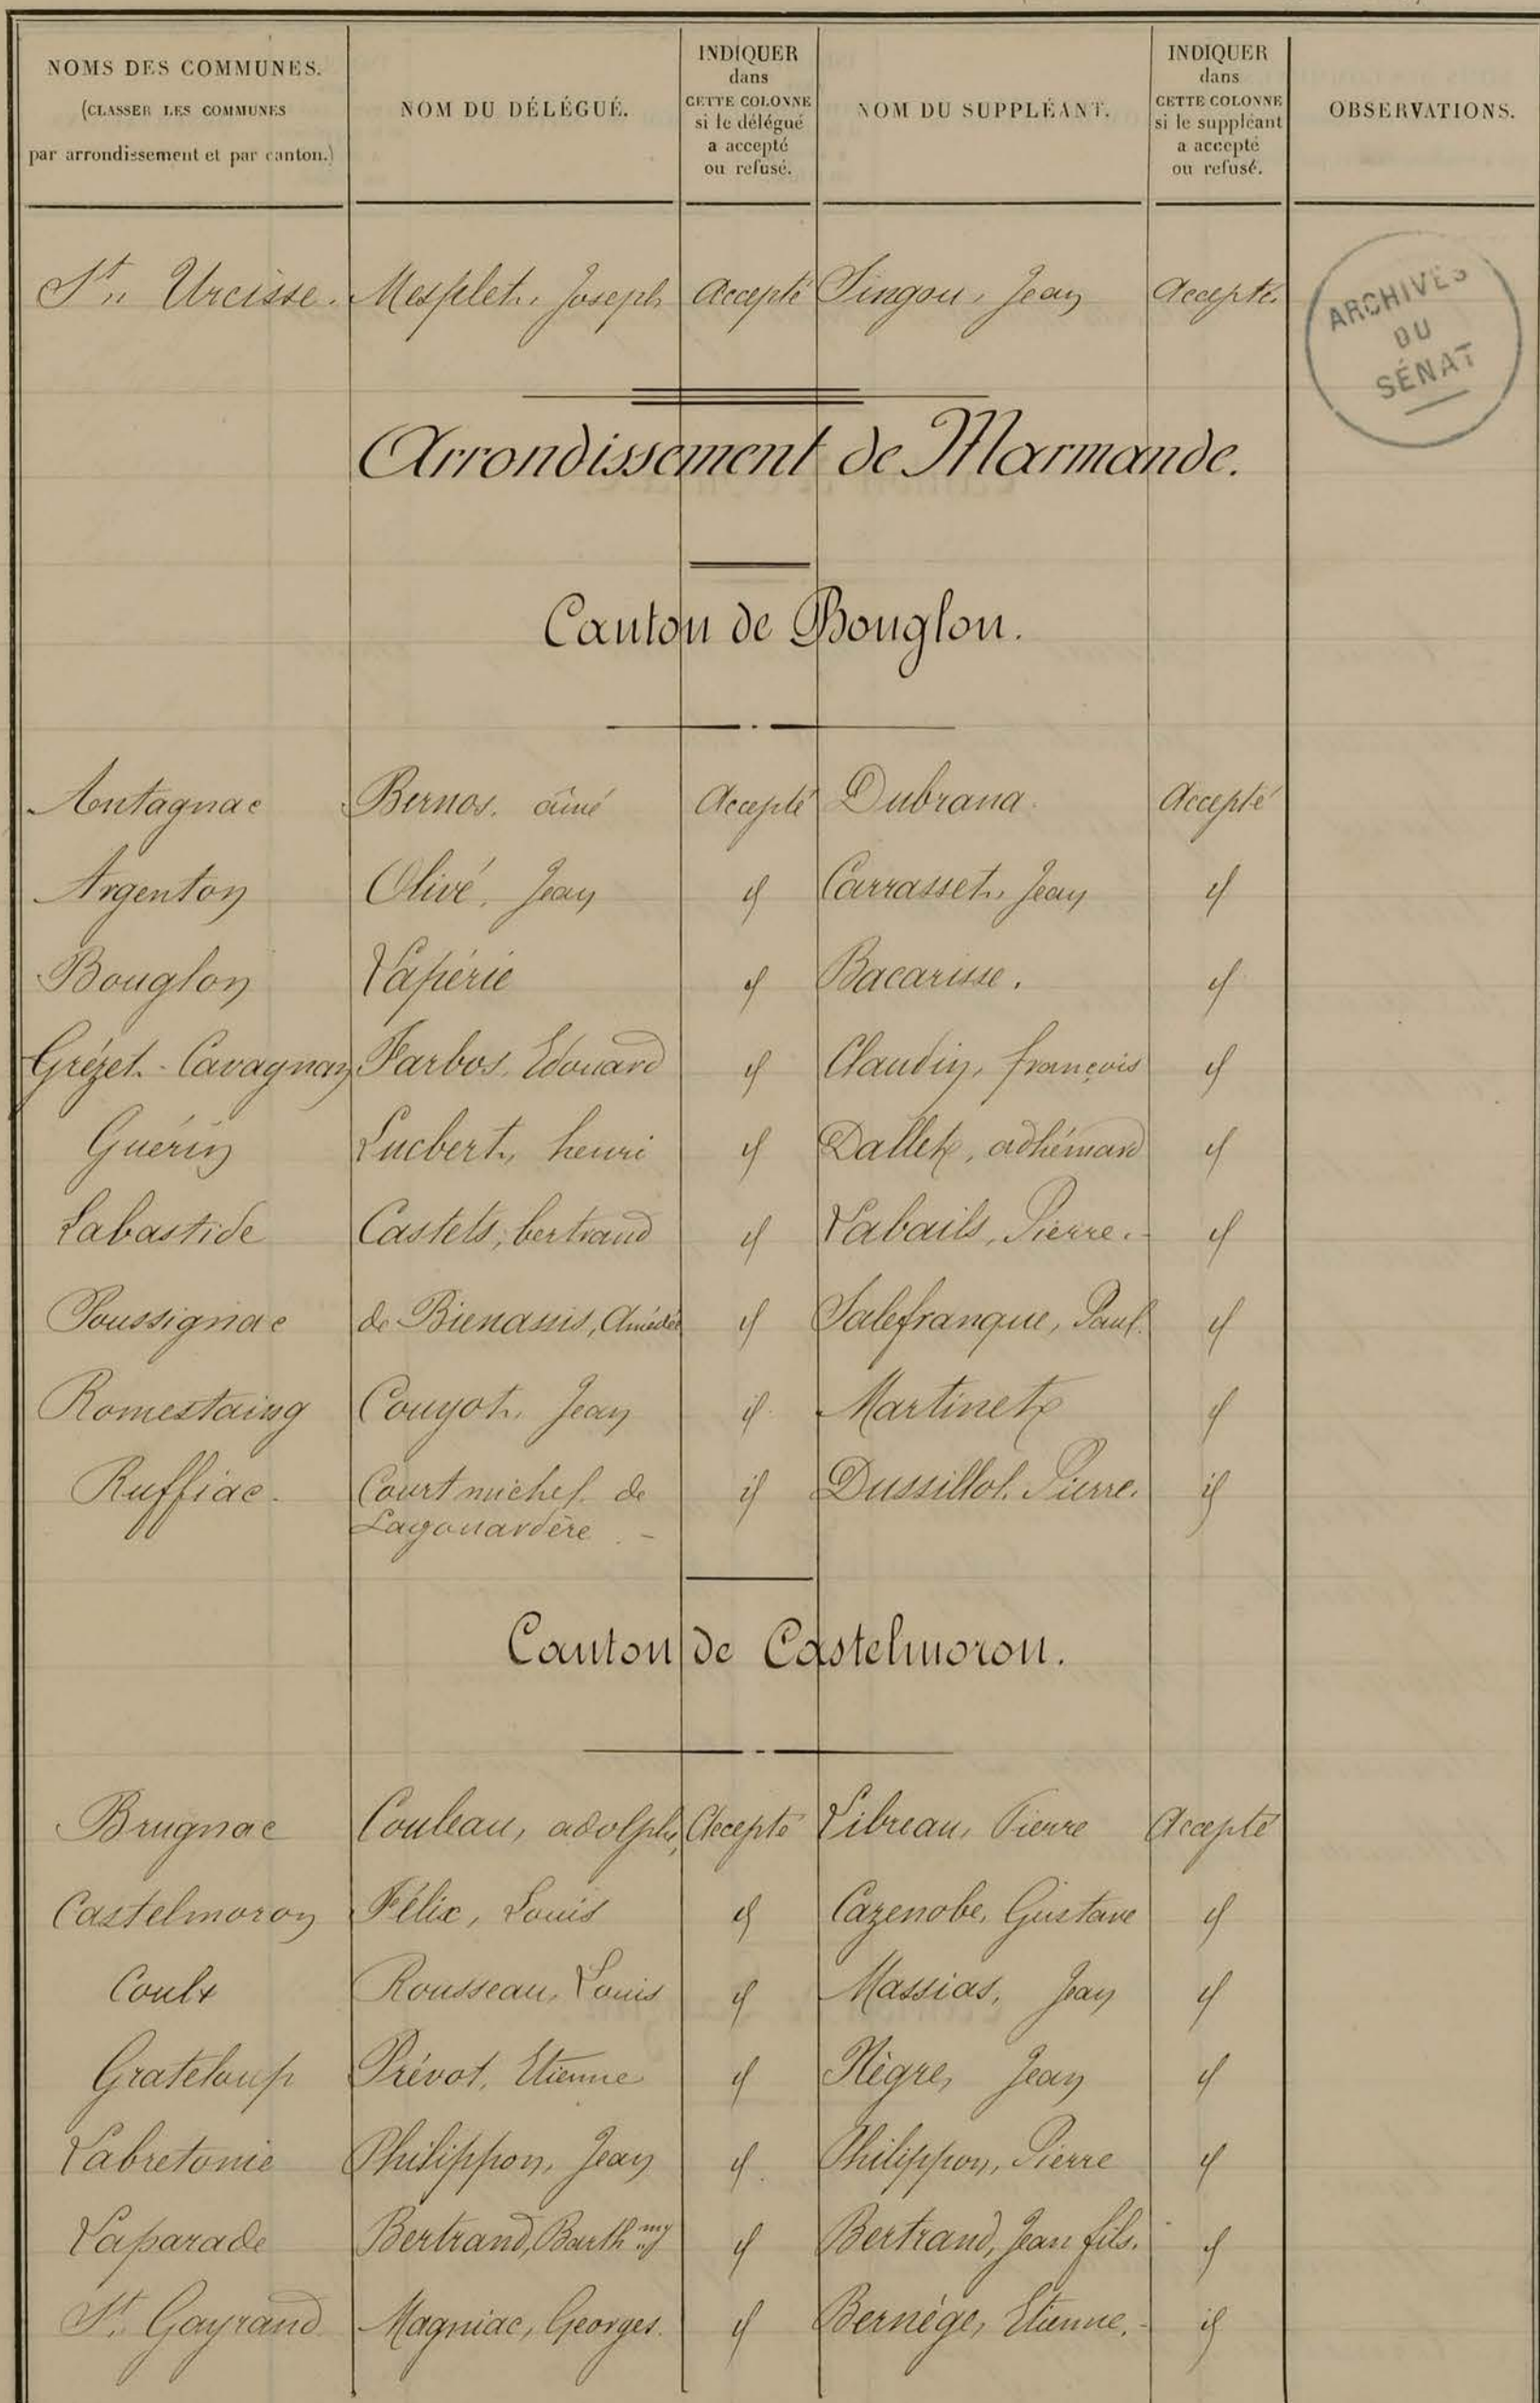 NOMS DES COMMUNES.
(CLASSER LES COMMUNES
par arrondissement et par canton.)
NOM DU DÉLÉGUÉ.
INDIQUER
dans
CETTE COLONNE
si le délégué
a accepté
ou refusé.
NOM DU SUPPLÉANT.
INDIQUER
dans
CETTE COLONNE
si le suppléant
a accepté
ou refusé.
OBSERVATIONS.
St. Urcisse. Mesplet, Joseph Accepté Singou, Jean Accepté.
ARCHIVES
DU
SÉNAT
Arrondissement de Marmande.
Canton de Bouglon.
Antagnac Bernos, aimé Accepté Dubrana. Accepté
Argenton Olivé, Jean id Carrasset, Jean id
Bouglon Lapérie id Bacarisse. id
Grézet-Cavagnan Farbos, Edouard id Claudin, françois id
Guérin Lucbert, henri id Dallet, adhémard id
Labastide Castets, bertrand id Labails, Pierre. id
Poussignac de Bienassis, Amédée id Salefranque, Paul. id
Romestaing Couyot, Jean id Martinet id
Ruffiac. Court michel de id Dussillol, Pierre. id
Lagouardère
Canton de Castelmoron.
Brugnac Couleau, adolphe, Accepté Libreau, Pierre Accepté
Castelmoron Félix, Louis id Cazenobe, Gustave id
Coulx Rousseau, Louis id Massias, Jean id
Grateloup Prévot, Etienne id Nègre, Jean id
Labretonie Philippon, Jean id. Philippon, Pierre id
Laparade Bertrand, Barthmy id Bertrand, Jean fils. id
St. Gayrand Magniac, Georges. id Bernège, Etienne. id